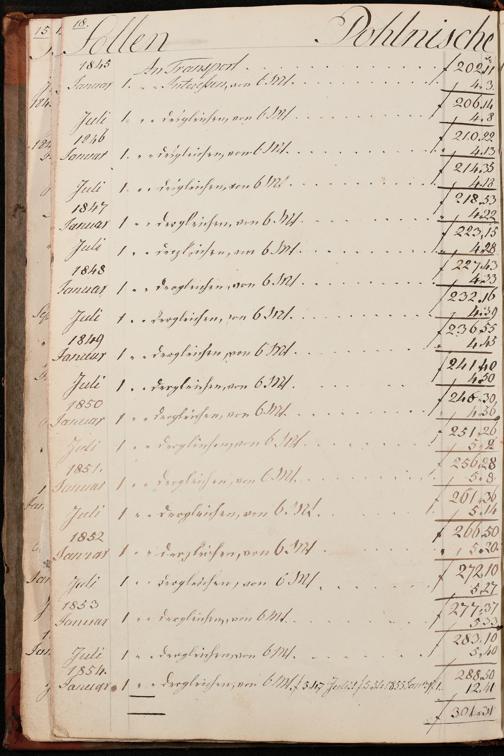 15. 1. 18.
Sollen Pohlnische
1845 An Transport f 202,11
Januar 1. " " Interessen, von 6 Mt. 4.3
f 206,14
Juli 1. " " dergleichen, von 6 Mt. 4.8
1846 f 210.22
Januar 1. " " dergleichen, von 6 Mt. 4.13
f 214.35
Juli 1. " " dergleichen, von 6 Mt. 4.18
1847 f 218.53
Januar 1. " " dergleichen, von 6 Mt. 4.22
f 223,15
Juli 1. " " dergleichen, von 6 Mt. 4.28
1848 f 227.43
Januar 1 " " dergleichen, von 6 Mt. 4.33
f 232.16
Juli 1 " " dergleichen, von 6 Mt. 4.39
1849 f 236,55
Januar 1 " " dergleichen, von 6 Mt. 4.45
f 241.40
Juli 1 " " dergleichen, von 6 Mt. 4.50
1850 f 246.30
Januar 1 " " dergleichen, von 6 Mt. 4.56
f 251.26
Juli 1 " " dergleichen, von 6 Mt. 5.2
1851. f 256.28
Januar 1 " " dergleichen, von 6 Mt. 5.8
f 261.36
Juli 1 " " dergleichen, von 6 Mt. 5.14
1852 f 266.50
Januar 1 " " dergleichen, von 6 Mt. 5.20
f 272.10
Juli 1 " " dergleichen, von 6 Mt. 5.27
1853 f 277.37
Januar 1 " " dergleichen, von 6 Mt. 5.33
f 283.10
Juli 1 " " dergleichen, von 6 Mt. 5,40
1854 f 288.50
Januar 1 " " dergleichen, von 6 Mt. 12.41
f 301.31